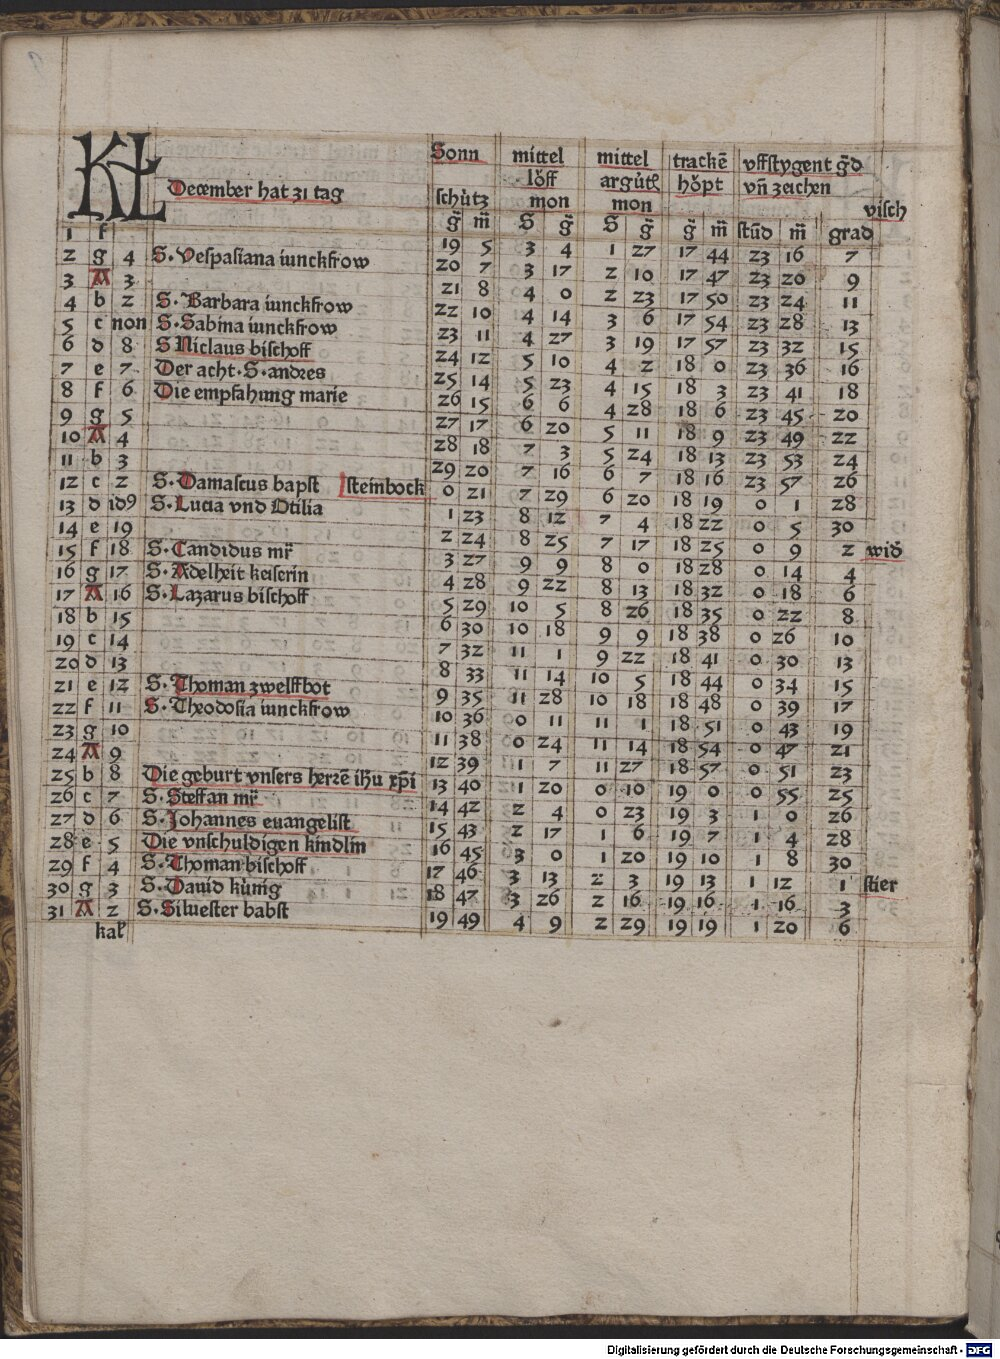 KL December hat 31 tag
Sonn mittel mittel trackē vffstygent gd̄
löff argūtl höpt vn̄ zeichen
schütz mon mon visch
g̃ m̃ S g̃ S g̃ g̃ m̃ stūd m̃ grad
1 f 19 5 3 4 1 27 17 44 23 16 7
2 g 4 S. Vespasiana iunckfrow 20 7 3 17 2 10 17 47 23 20 9
3 A 3 21 8 4 0 2 23 17 50 23 24 11
4 b 2 S. Barbara iunckfrow 22 10 4 14 3 6 17 54 23 28 13
5 c non S. Sabina iunckfrow 23 11 4 27 3 19 17 57 23 32 15
6 d 8 S Niclaus bischoff 24 12 5 10 4 2 18 0 23 36 16
7 e 7 Der acht. S. andres 25 14 5 23 4 15 18 3 23 41 18
8 f 6 Die empfahung marie 26 15 6 6 4 28 18 6 23 45 20
9 g 5 27 17 6 20 5 11 18 9 23 49 22
10 A 4 28 18 7 3 5 24 18 13 23 53 24
11 b 3 29 20 7 16 6 7 18 16 23 57 26
12 c 2 S. Damascus bapst steinbock 0 21 7 29 6 20 18 19 0 1 28
13 d id9 S. Lucia vnd Otilia 1 23 8 12 7 4 18 22 0 5 30
14 e 19 2 24 8 25 7 17 18 25 0 9 2 wid̄
15 f 18 S. Candidus mr̄ 3 27 9 9 8 0 18 28 0 14 4
16 g 17 S. Adelheit keiserin 4 28 9 22 8 13 18 32 0 18 6
17 A 16 S. Lazarus bischoff 5 29 10 5 8 26 18 35 0 22 8
18 b 15 6 30 10 18 9 9 18 38 0 26 10
19 c 14 7 32 11 1 9 22 18 41 0 30 13
20 d 13 8 33 11 14 10 5 18 44 0 34 15
21 e 12 S. Thoman zwelffbot 9 35 11 28 10 18 18 48 0 39 17
22 f 11 S. Theodosia iunckfrow 10 36 0 11 11 1 18 51 0 43 19
23 g 10 11 38 0 24 11 14 18 54 0 47 21
24 A 9 12 39 1 7 11 27 18 57 0 51 23
25 b 8 Die geburt vnsers herrē ihu xp̄i 13 40 1 20 0 10 19 0 0 55 25
26 c 7 S. Steffan mr̄ 14 42 2 4 0 23 19 3 1 0 26
27 d 6 S. Johannes euangelist 15 43 2 17 1 6 19 7 1 4 28
28 e 5 Die vnschuldigen kindlin 16 45 3 0 1 20 19 10 1 8 30
29 f 4 S. Thoman bischoff 17 46 3 13 2 3 19 13 1 12 1 stier
30 g 3 S. Dauid künig 18 47 3 26 2 16 19 16 1 16 3
31 A 2 S. Siluester babst 19 49 4 9 2 29 19 19 1 20 6
kal̄
Digitalisierung gefördert durch die Deutsche Forschungsgemeinschaft - DFG